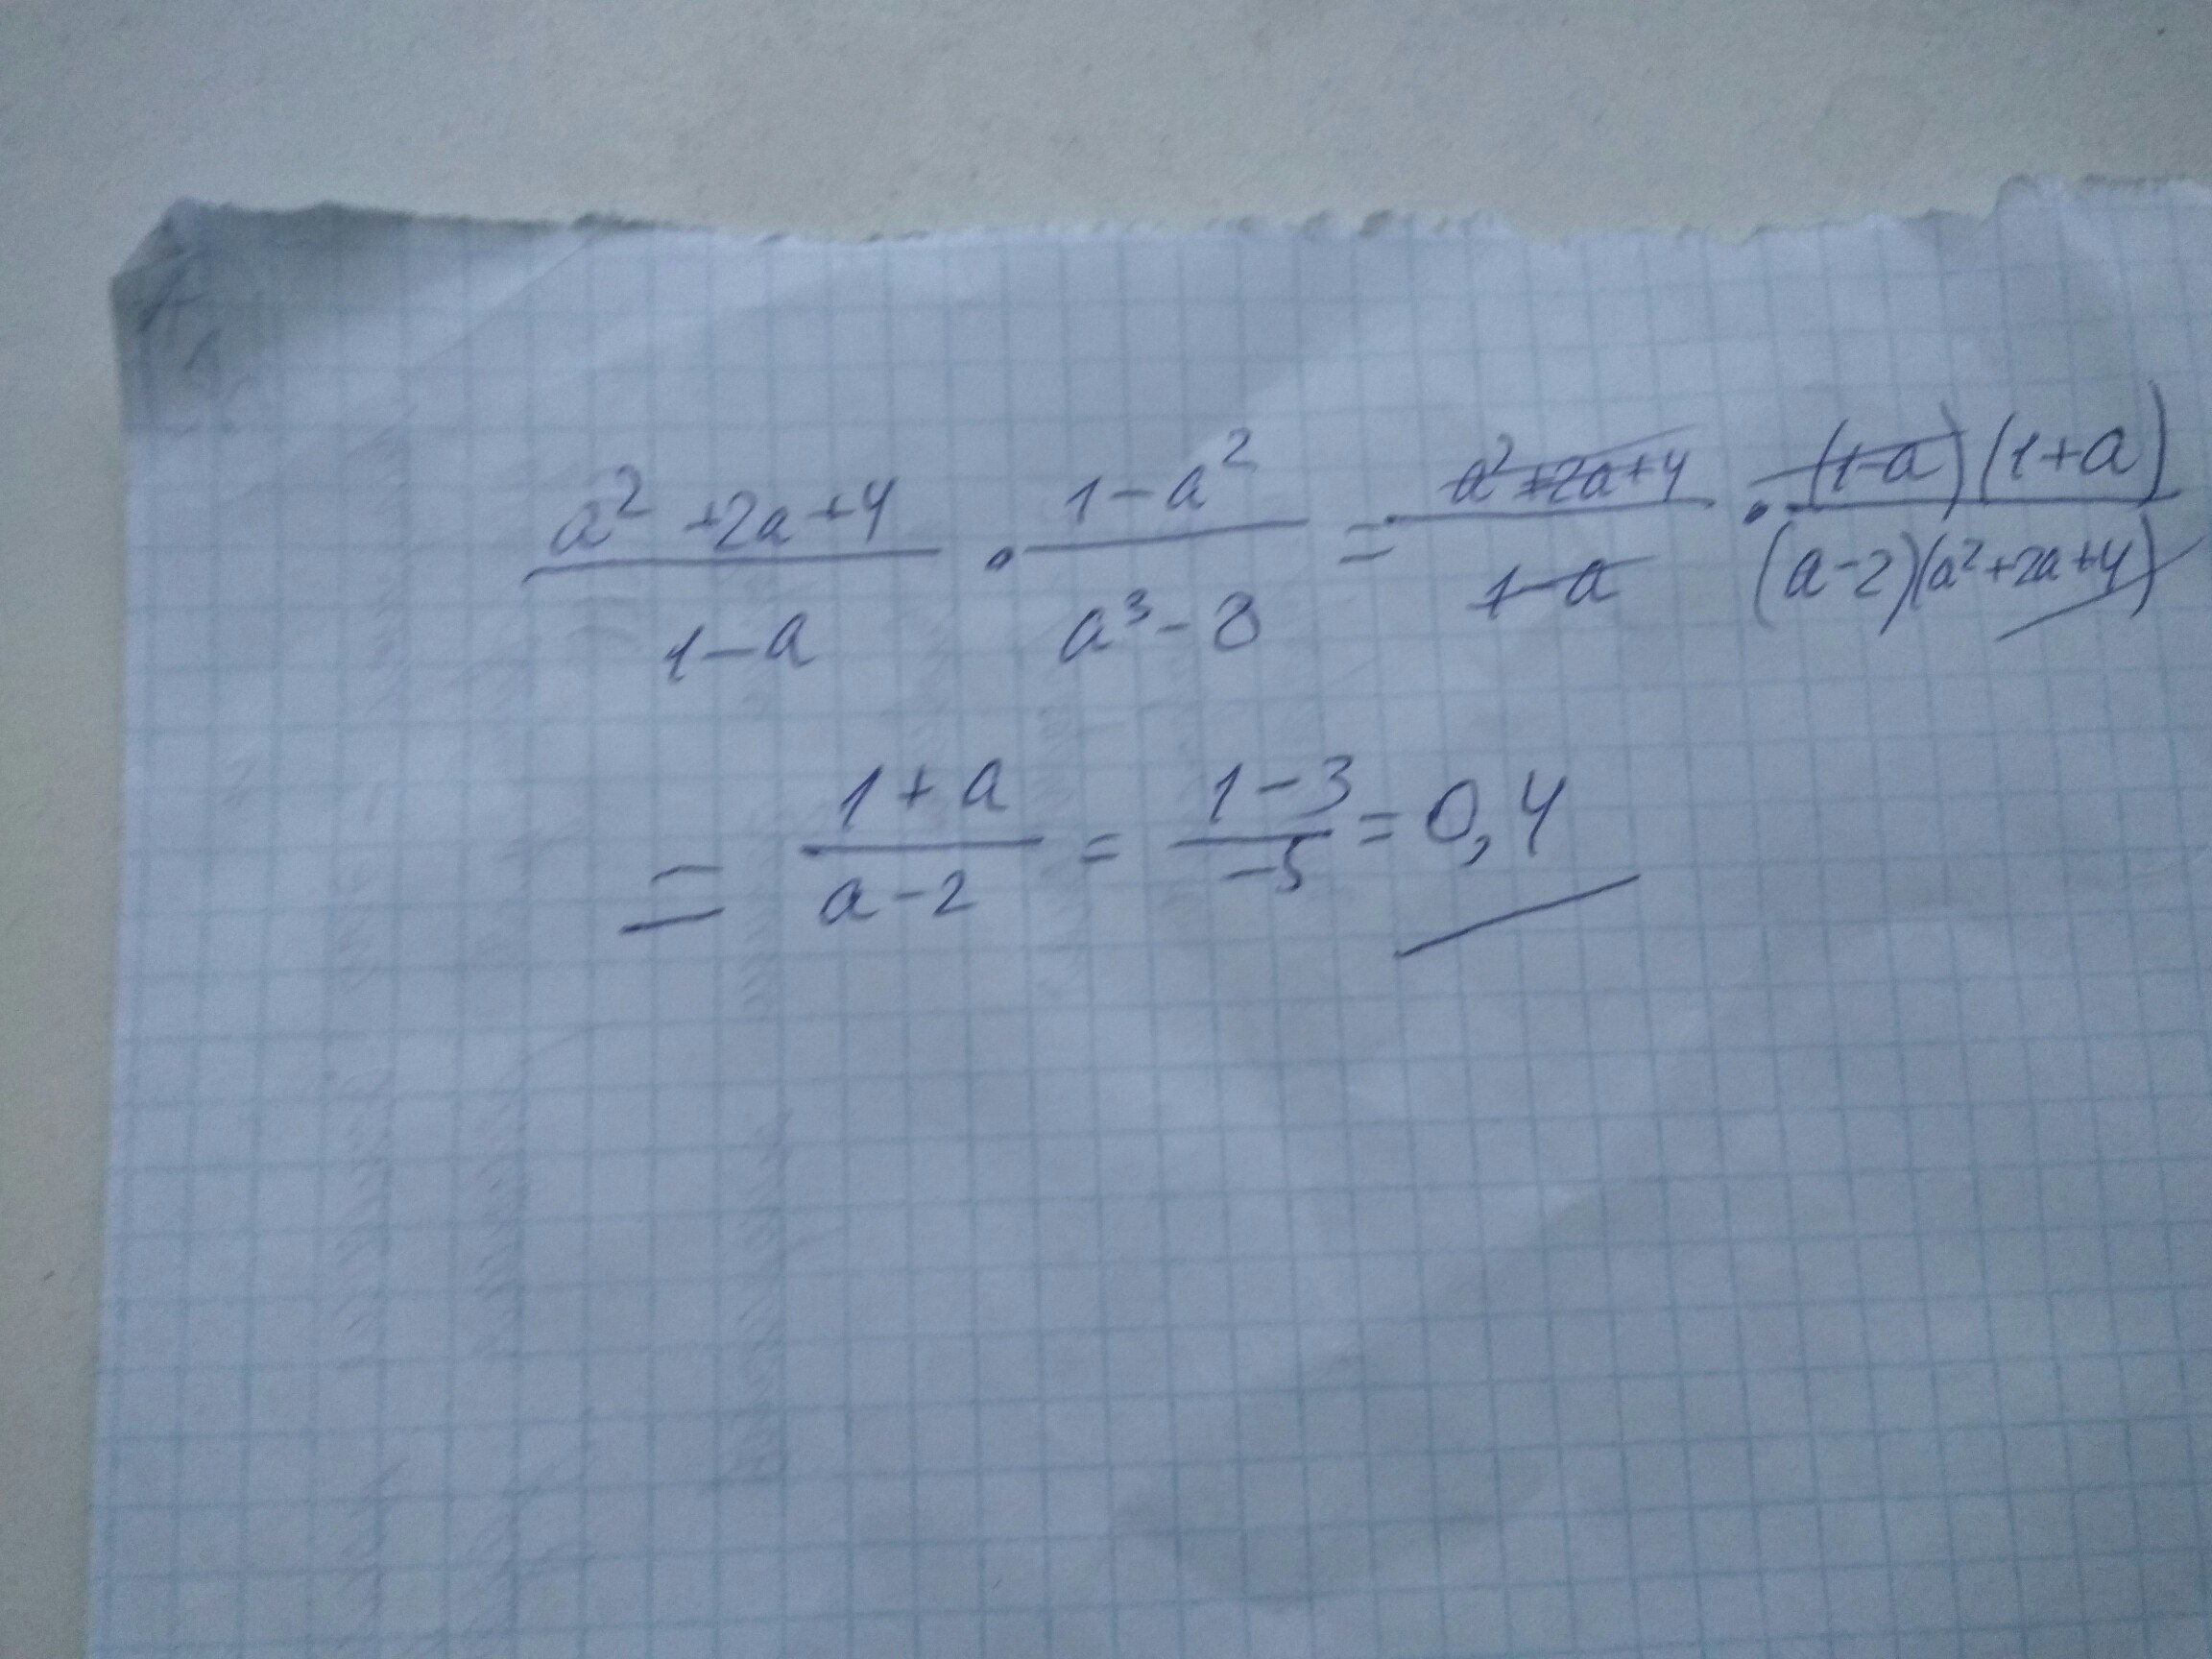 (a² + 2a + 4)/(1 - a) · (1 - a²)/(a³ - 8) = (a² + 2a + 4)/(1 - a) · ((1 - a)(1 + a))/((a - 2)(a² + 2a + 4))
= (1 + a)/(a - 2) = (1 - 3)/(-5) = 0,4